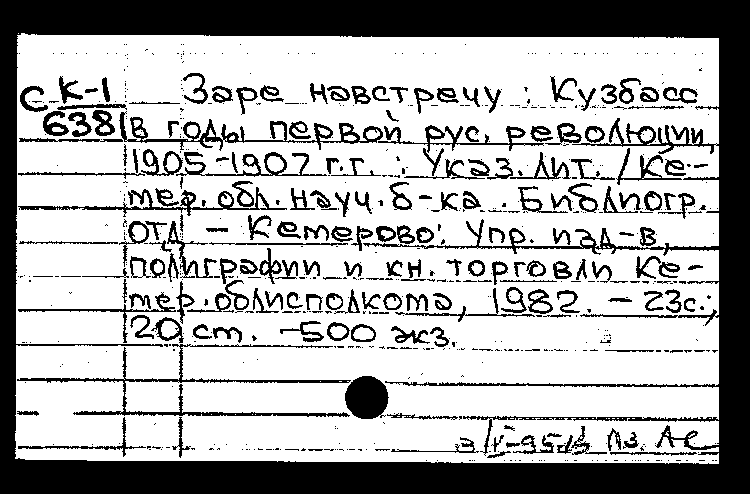 С К-1 Заре навстречу : Кузбасс
638 (в годы первой рус. революции,
1905-1907 г.г. : Указ. лит. / Ке-
мер. обл. науч. б-ка. Библиогр.
отд. - Кемерово: Упр. изд-в,
полиграфии и кн. торговли Ке-
мер. облисполкома, 1982. - 23с.;
20 см. -500 экз.